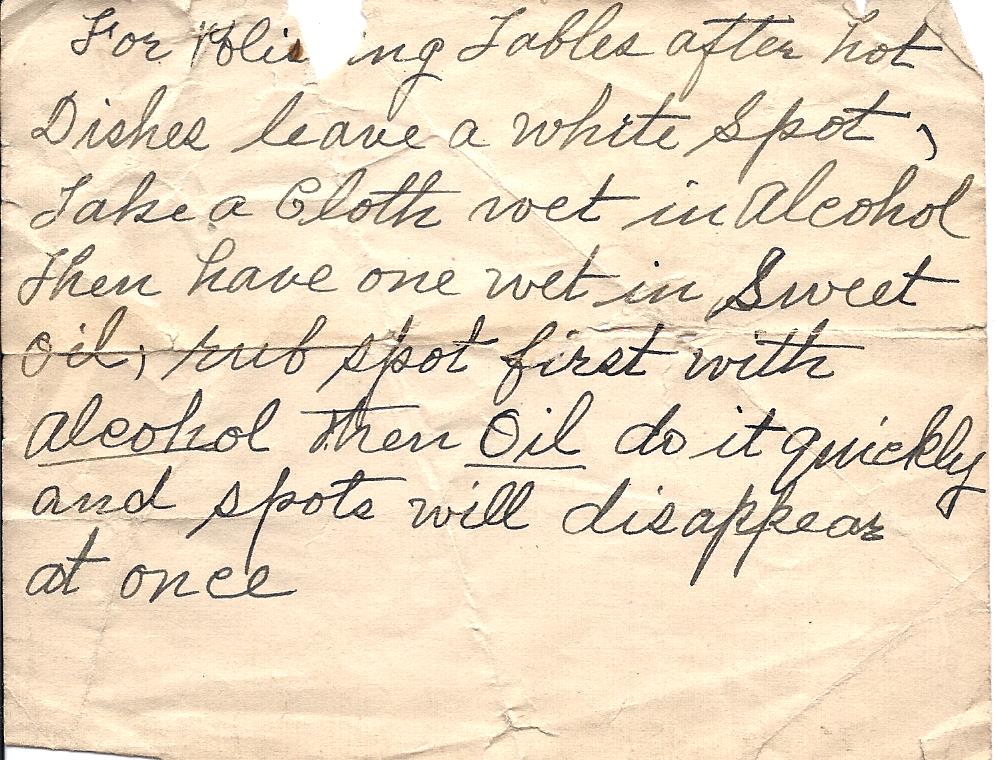 For Polis ng Tables after hot
Dishes leave a white Spot,
Take a Cloth wet in Alcohol
Then have one wet in Sweet
Oil, rub spot first with
Alcohol then Oil do it quickly
and spots will disappear
at once